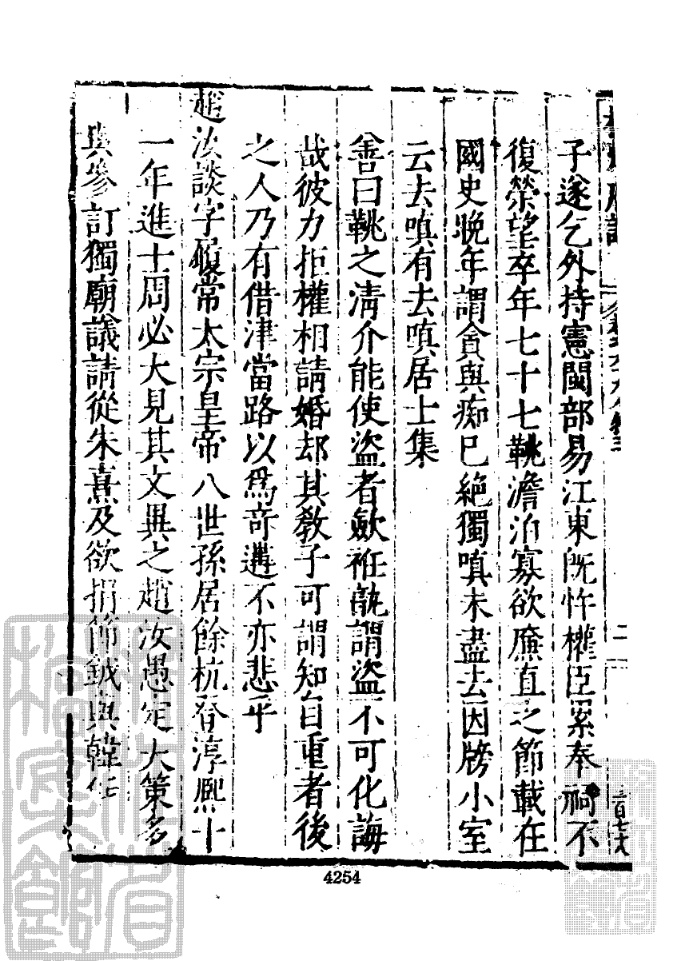 子遂乞外持憲閩部易江東既忤權臣累奉祠不
復榮望卒年七十七鞉澹泊寡欲廉直之節載在
國史晚年謂貪與痴已絕獨嗔未盡去因牓小室
云去嗔有去嗔居士集
善曰鞉之清介能使盜者歛袵孰謂盜不可化誨
哉彼力拒權相請婚却其敎子可謂知自重者後
之人乃有借津當路以爲奇遘不亦悲乎
趙汝談字履常太宗皇帝八世孫居餘杭登淳熈十
一年進士周必大見其文異之趙汝愚定大策多
與參訂獨廟議請從朱熹及欲捐節鉞與韓
二
三百七十八
4254